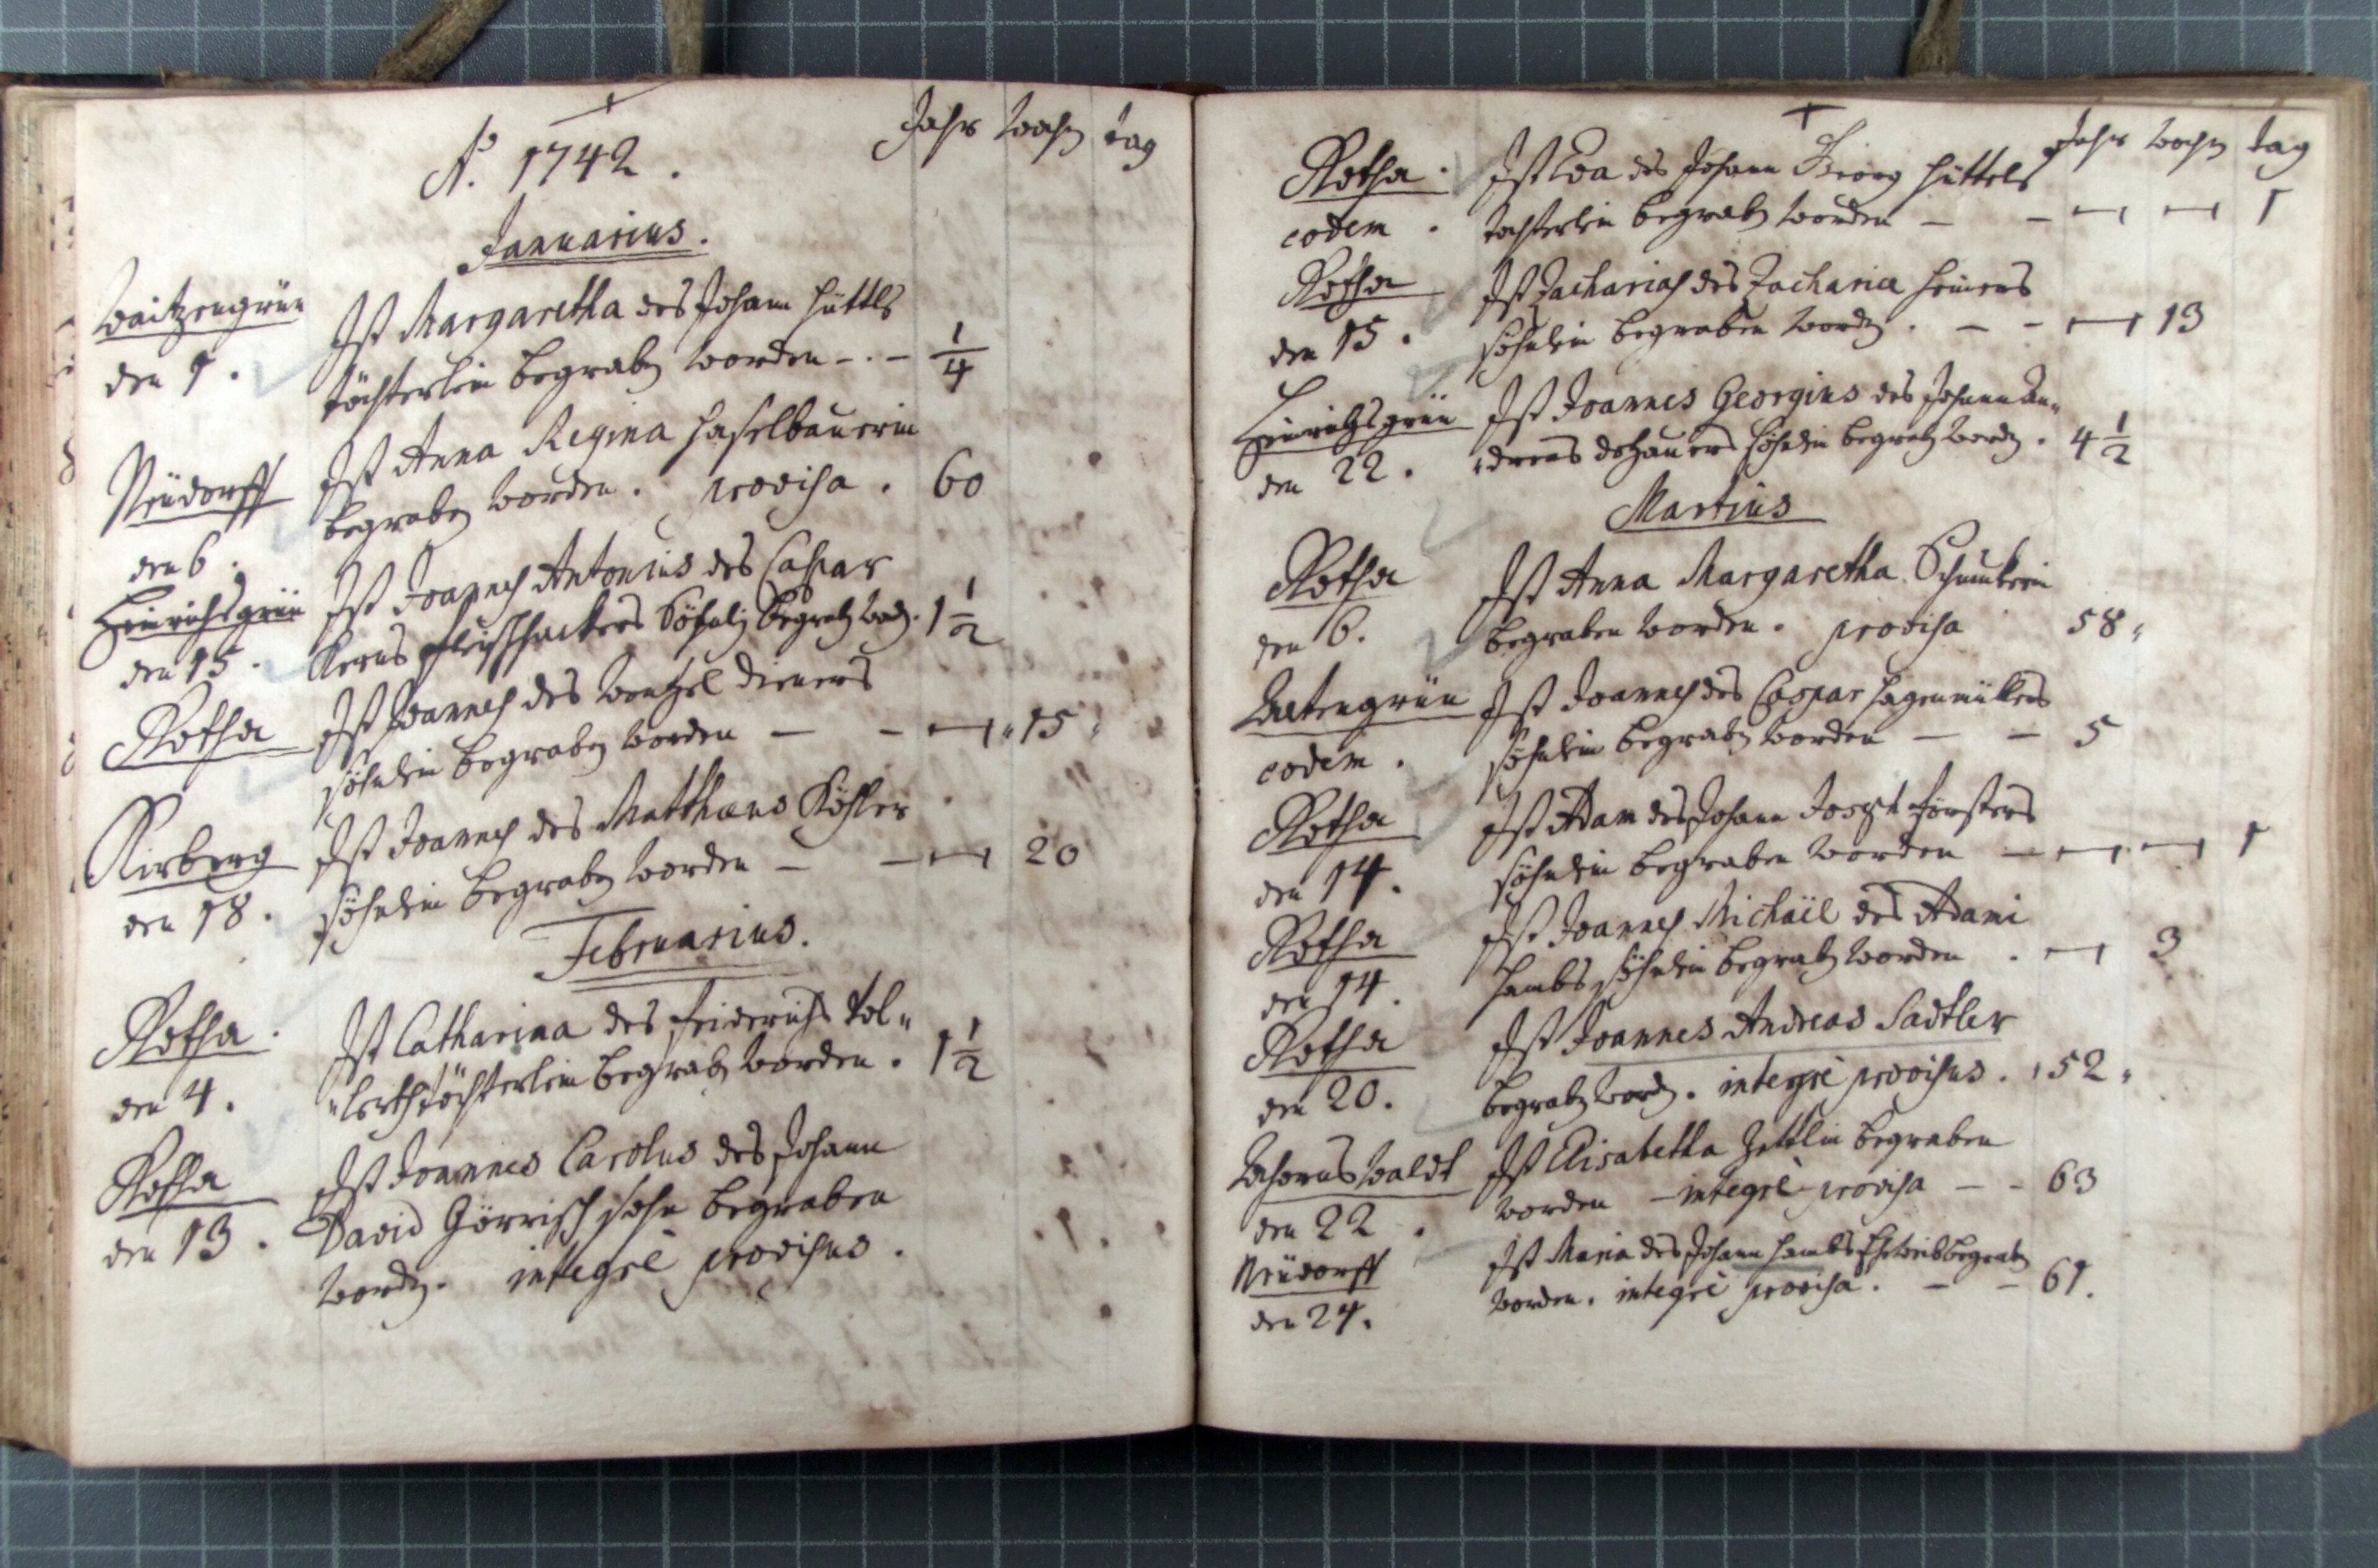 A. 1742.
Jahr woch tag
Januarius.
Waitzengrün
den 1.
Ist Margaretha des Johann Hüttls
töchterlein begraben worden - . - 1/4
Neüdorff
den 6.
Ist Anna Regina Haselbauerin
begraben worden. provisa. 60
Heinrichsgrün
den 15.
Ist Joannes Antonius des Caspar
Kerns fleischhackers Söhnlein begraben word. 1 1/2
Rotha
Ist Joannes des Wentzel Dieners
söhnlein begraben worden — - — 15
Kirberg
den 18.
Ist Joannes des Matthæus Köhler
söhnlein begraben worden — - — 20
Februarius.
Rotha.
den 4.
Ist Catharina des Friderichs Tol„
„lerths töchterlein begraben worden. 1 1/2
Rotha
den 13.
Ist Joannes Carolus des Johann
David Görrisch sohn begraben
worden. integrè provisus.
Jahr woch tag
Rotha.
eodem.
Ist Eva des Johann Georg Hüttels
tochterlein begraben worden — - — — 1
Rotha
den 15.
Ist Zacharias des Zachariæ Heiners
söhnlein begraben worden. - - — 13
Heinrichsgrün
den 22.
Ist Joannes Georgius des Johann An„
„dreas söhnlein begraben worden. 4 1/2
Martius
Rotha
den 6.
Ist Anna Margaretha
begraben worden. provisa 58
eodem.
Ist Joannes des Caspar Hagenmüllers
söhnlein begraben worden — - 5
Rotha
den 14.
Ist Adam des Johann Joseph Försters
söhnlein begraben worden — — — 1
Rotha
den 14.
Ist Joannes Michaël des Adami
Hambs söhnlein begraben worden . — 3
Rotha
den 20.
Ist Joannes Andreas Sadtler
begraben word. integrè provisus. 52
den 22.
Ist Elisabetha Zettlin begraben
worden - integrè provisa - - 63
Neüdorff
den 24.
Ist Maria des Johann Hambs Eheweib begraben
worden. integrè provisa. - - 61.